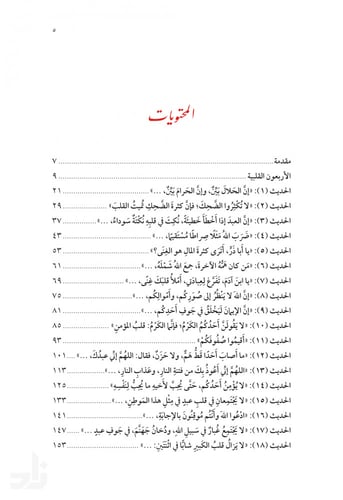 ٥
المحتويات
مقدمة ................ ٧
الأربعون القلبية ................ ٩
الحديث (١): «إنَّ الحَلالَ بَيِّنٌ، وإنَّ الحَرامَ بَيِّنٌ، ...» ................ ٢١
الحديث (٢): «لا تُكْثِرُوا الضَّحِكَ؛ فإنَّ كثرةَ الضَّحِكِ تُمِيتُ القلبَ» ................ ٢٩
الحديث (٣): «إنَّ العبدَ إذا أَخطأَ خطيئةً، نُكِتَ في قلبِهِ نُكْتَةٌ سَوداءُ، ...» ................ ٣٧
الحديث (٤): «ضَرَبَ اللهُ مَثَلًا صِراطًا مُستَقِيمًا، ...» ................ ٤٣
الحديث (٥): «يا أبا ذَرٍّ، أتَرى كثرةَ المالِ هو الغِنَى؟» ................ ٥٣
الحديث (٦): «مَن كان هَمُّهُ الآخرةَ، جمعَ اللهُ شَمْلَهُ، ...» ................ ٦١
الحديث (٧): «يا ابنَ آدَمَ، تَفَرَّغْ لِعِبادَتي، أَملأْ قلبَكَ غِنًى، ...» ................ ٦٩
الحديث (٨): «إنَّ اللهَ لا يَنظُرُ إلى صُوَرِكُم، وأموالِكُم، ...» ................ ٧٥
الحديث (٩): «إنَّ الإيمانَ لَيَخْلَقُ في جَوفِ أَحدِكُم، ...» ................ ٨١
الحديث (١٠): «لا يَقُولَنَّ أَحدُكُمُ الكَرْمُ؛ فإنَّما الكَرْمُ: قلبُ المؤمنِ» ................ ٨٥
الحديث (١١): «أَقِيمُوا صُفُوفَكُم» ................ ٩٣
الحديث (١٢): «ما أَصابَ أَحدًا قَطُّ هَمٌّ، ولا حَزَنٌ، فقال: اللهُمَّ إنِّي عبدُكَ، ...» ................ ١٠١
الحديث (١٣): «اللهُمَّ إنِّي أَعُوذُ بكَ من فتنةِ النارِ، وعذابِ النارِ، ...» ................ ١١٣
الحديث (١٤): «لا يُؤْمِنُ أَحدُكُم، حتَّى يُحِبَّ لِأَخيهِ ما يُحِبُّ لِنَفْسِهِ» ................ ١٢٥
الحديث (١٥): «لا يَجْتَمِعانِ في قلبِ عبدٍ في مِثْلِ هذا المَوطِنِ، ...» ................ ١٣٣
الحديث (١٦): «ادْعُوا اللهَ وأَنتُم مُوقِنُونَ بالإجابةِ، ...» ................ ١٤١
الحديث (١٧): «لا يَجتمِعُ غُبارٌ في سَبيلِ اللهِ، ودُخانُ جَهَنَّمَ، في جَوفِ عبدٍ ...» ................ ١٤٧
الحديث (١٨): «لا يَزالُ قلبُ الكبيرِ شابًّا في اثنَتَينِ: ...» ................ ١٥٣
زاد